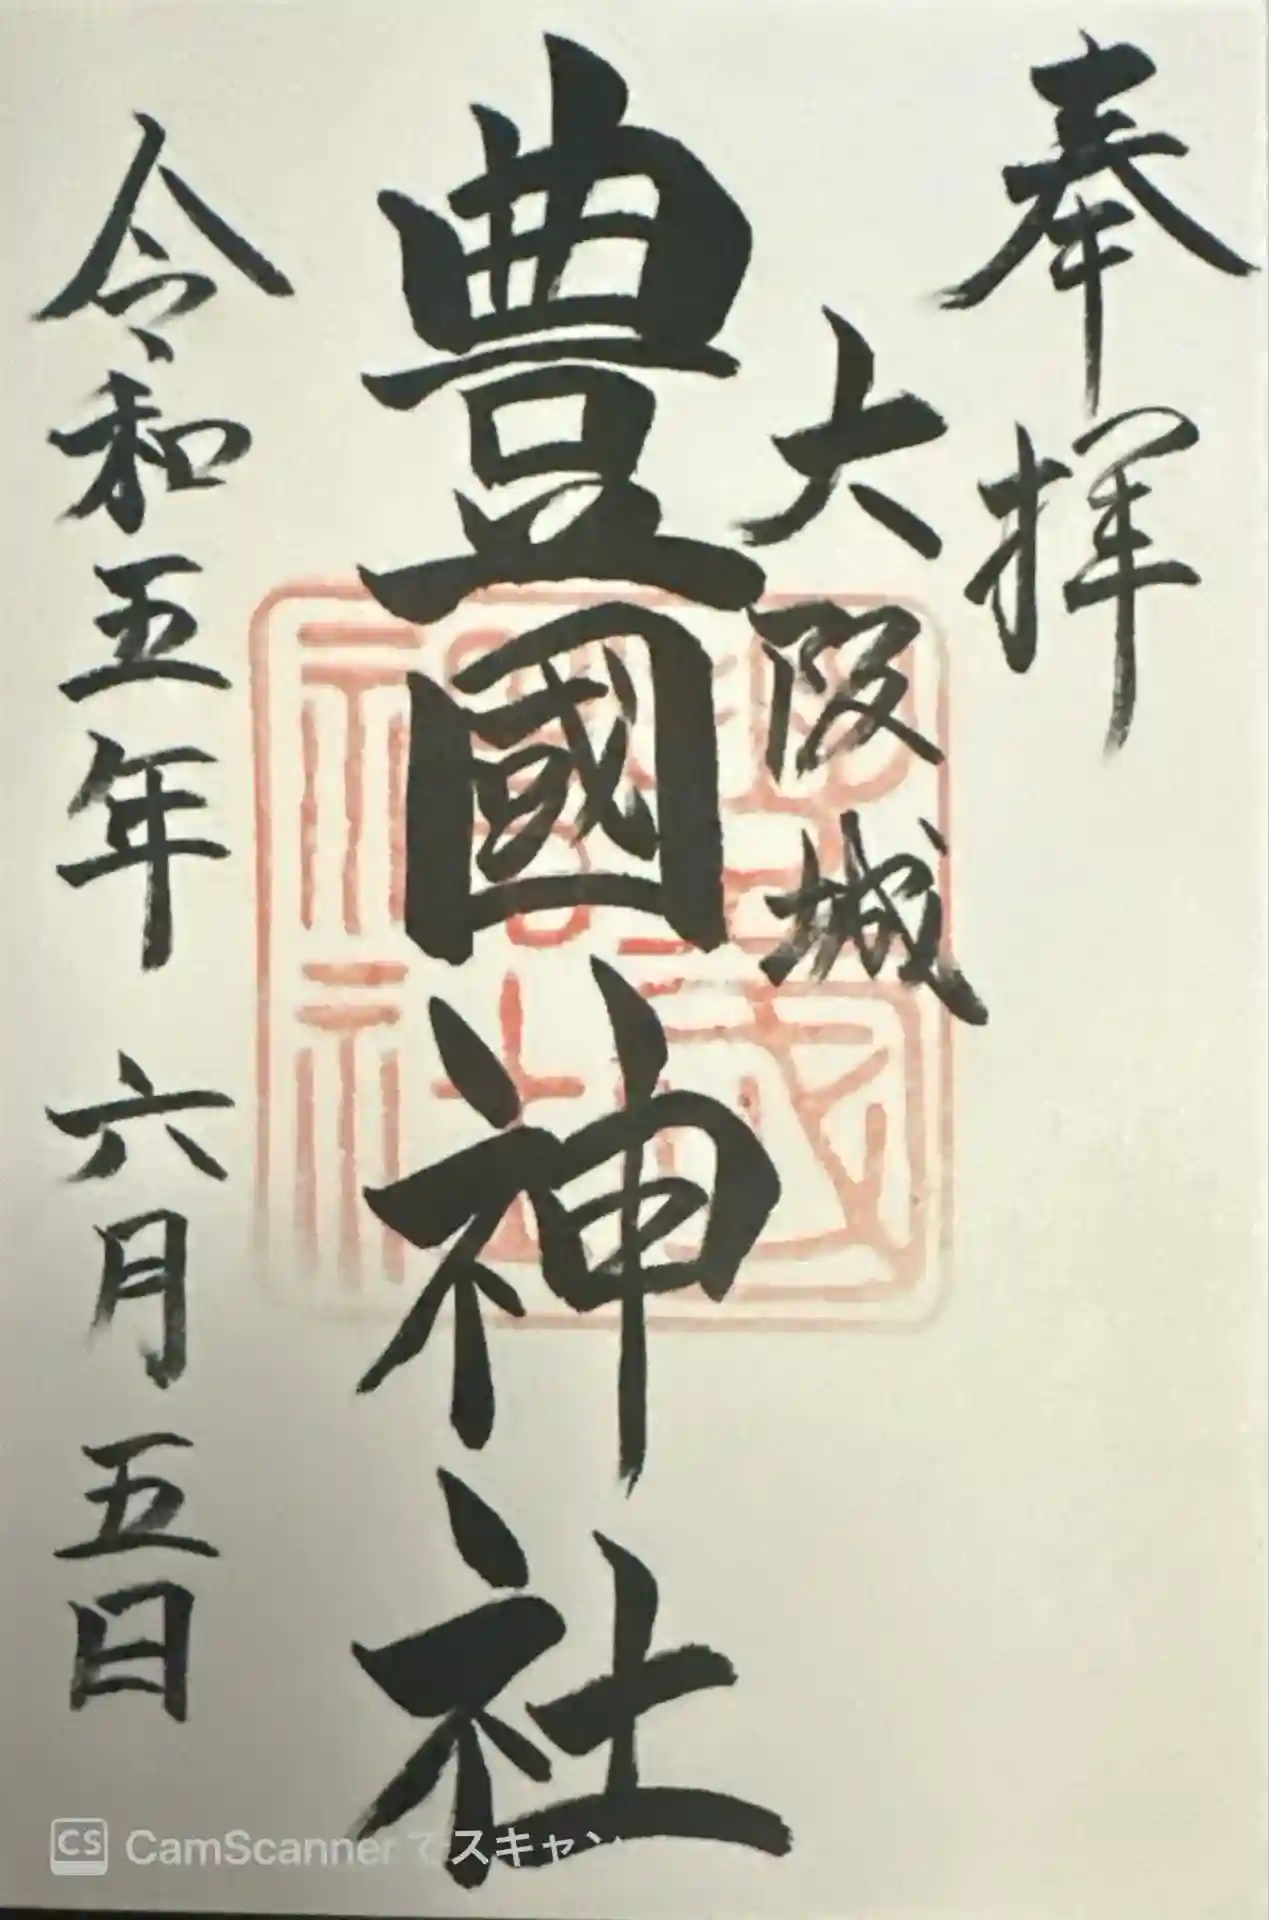 奉拝
大阪城
豊國神社
令和五年 六月五日
CS CamScanner でスキャン